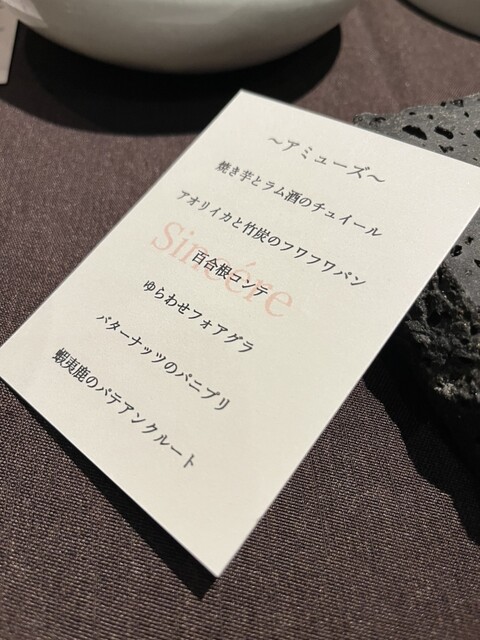 ～アミューズ～
焼き芋とラム酒のチュイール
アオリイカと竹炭のフワフワパン
Sincére
百合根コンテ
ゆらわせフォアグラ
バターナッツのパニプリ
蝦夷鹿のパテアンクルート